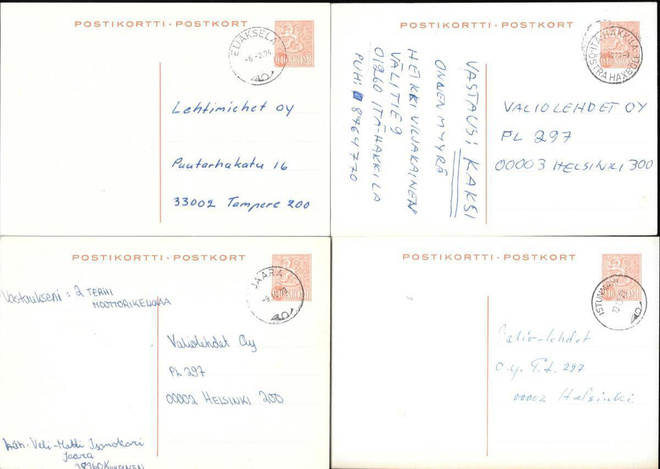 POSTIKORTTI - POSTKORT
Lehtimiehet Oy
Puutarhakatu 16
33002 Tampere 200
POSTIKORTTI - POSTKORT
ITÄ-HAKKILA
VASTAUS: KAKSI
ONGEN MYYRÄ
HEIKKI VILJAKAINEN
VÄLITIE 9
01260 ITÄ-HAKKILA
PUH: 8764770
VALIOLEHDET OY
PL 297
00003 HELSINKI 300
POSTIKORTTI - POSTKORT
JAARA
Vastaukseni: 2 TERHI
MOOTTORIKELKKAA
Valiolehdet Oy
PL 297
00002 HELSINKI 200
Veli-Matti
Jaara
POSTIKORTTI - POSTKORT
Valio-lehdet
O.y. P.L. 297
00002 Helsinki